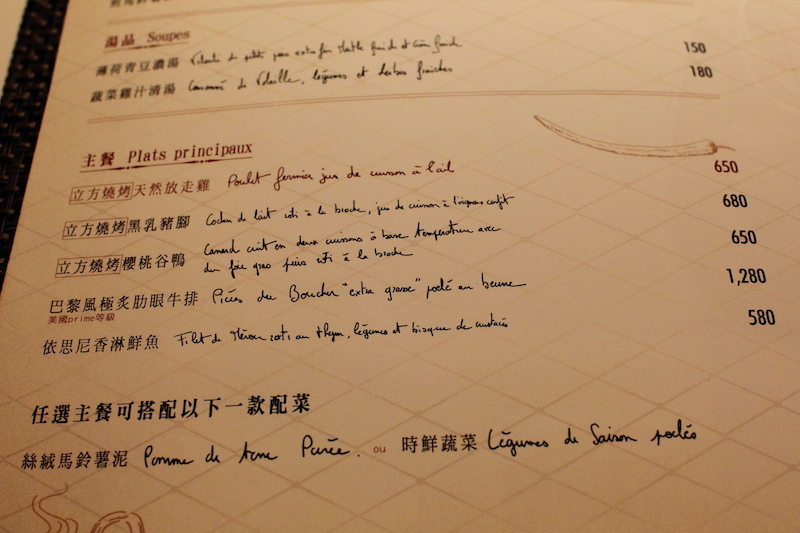 湯品 Soupes
薄荷青豆濃湯 Velouté de petits pois extra fins Menthe fraiche et crème fraiche 150
蔬菜雞汁清湯 Consommé de Volaille, légumes et herbes fraiches 180
主餐 Plats principaux
立方燒烤天然放走雞 Poulet fermier jus de cuisson à l'ail 650
立方燒烤黑乳豬腳 Cochon de lait roti à la broche, jus de cuisson à l'oignons confit 680
立方燒烤櫻桃谷鴨 Canard cuit en deux cuissons à basse température avec
du foie gras puis roti à la broche 650
巴黎風極炙肋眼牛排 Pièces du Boucher "extra grasse" poélé au beurre 1,280
美國prime等級
依思尼香淋鮮魚 Filet de Mérou roti au thym, légumes et bisque de crustacés 580
任選主餐可搭配以下一款配菜
絲絨馬鈴薯泥 Pomme de terre Purée. ou 時鮮蔬菜 Légumes de Saison poelés